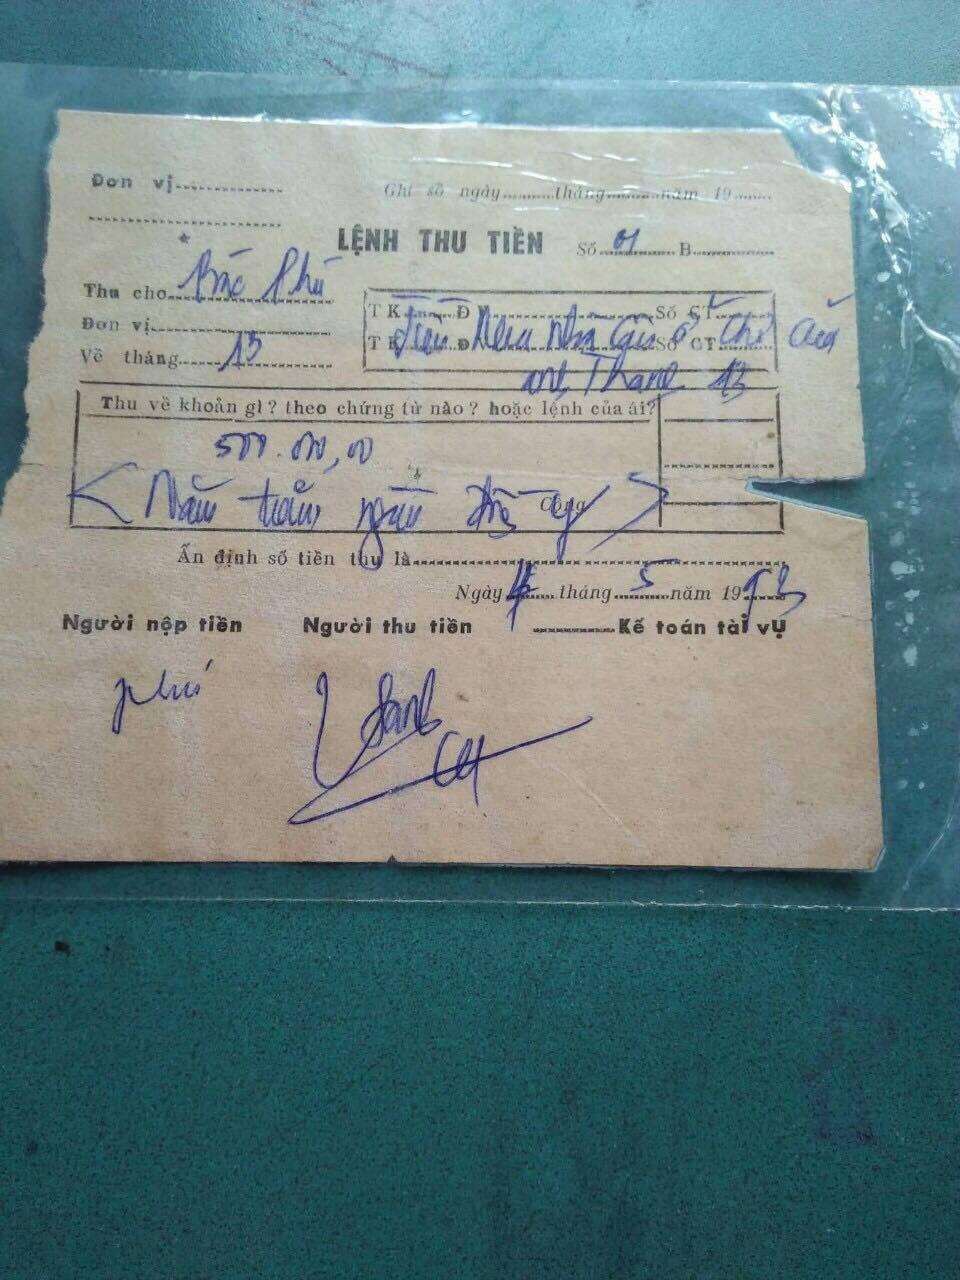 Đơn vị............... Ghi sổ ngày.........tháng.........năm 19.......
★ LỆNH THU TIỀN Số 01 B...............
Thu cho Bác Phú
T K Đ V Số CT
Đơn vị...............
Tiền nhà ở chợ của
T K Đ Số CT
Về tháng 13
anh Thanh 13
Thu về khoản gì? theo chứng từ nào? hoặc lệnh của ai?
500.000,00
Năm trăm ngàn đồng
Cộng
Ấn định số tiền thu là...............
Ngày tháng 5 năm 1993
Người nộp tiền Người thu tiền Kế toán tài vụ
Phú